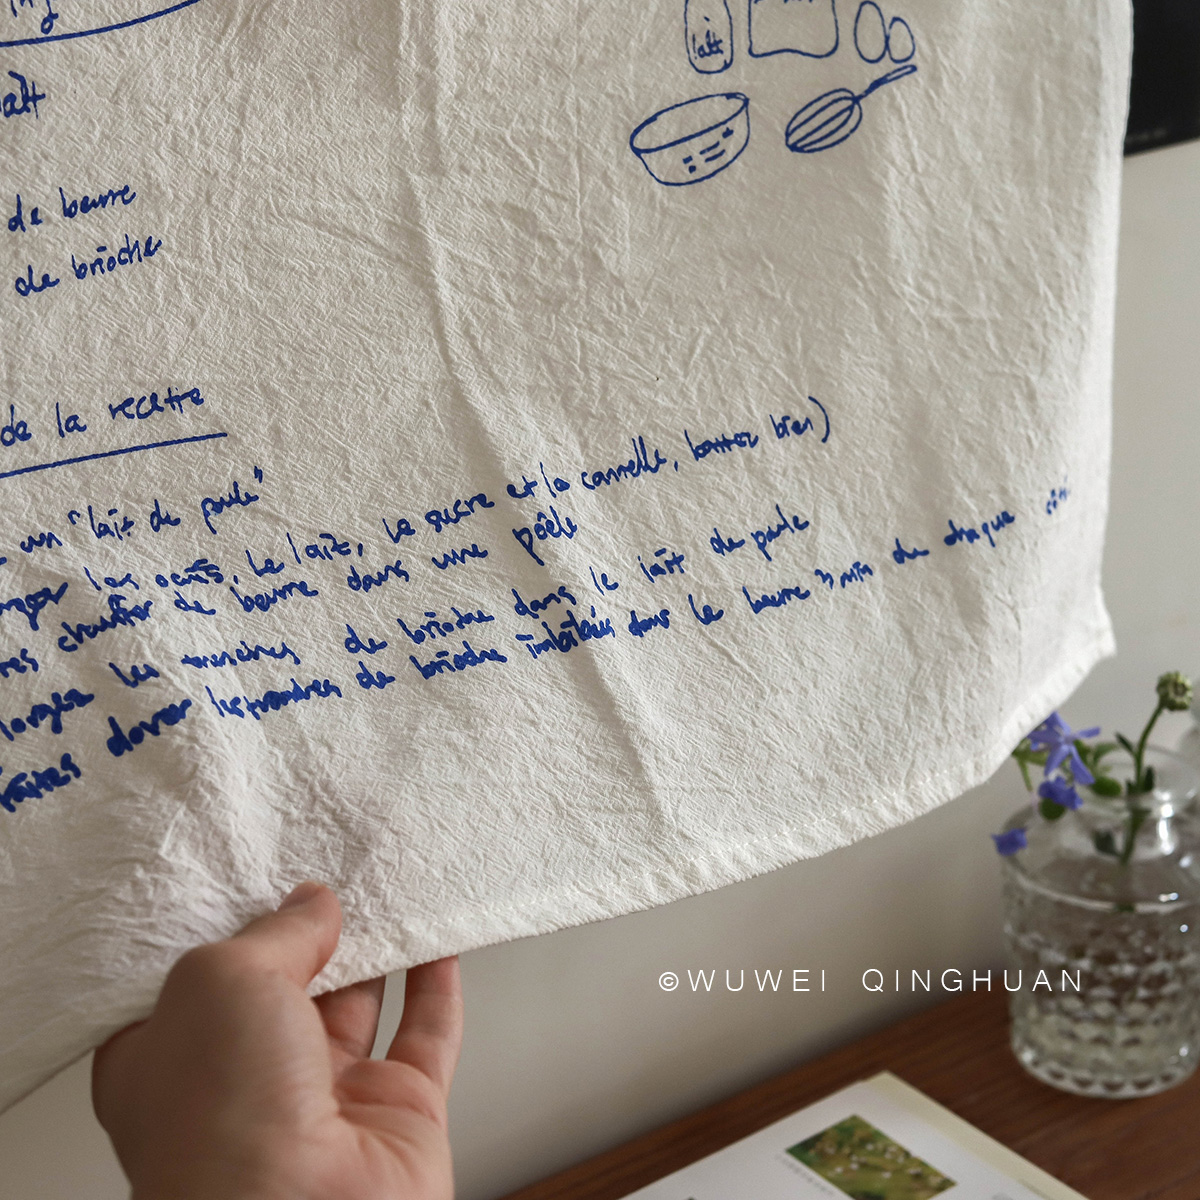 lait
de beurre
de brioche
de la recette
un "lait de poule"
les oeufs, le lait, le sucre et la cannelle, battez bien)
chauffer de beurre dans une poêle
les tranches de brioche dans le lait de poule
faites dorer les tranches de brioche imbibées dans le beurre 3 min de chaque côté
©WUWEI QINGHUAN